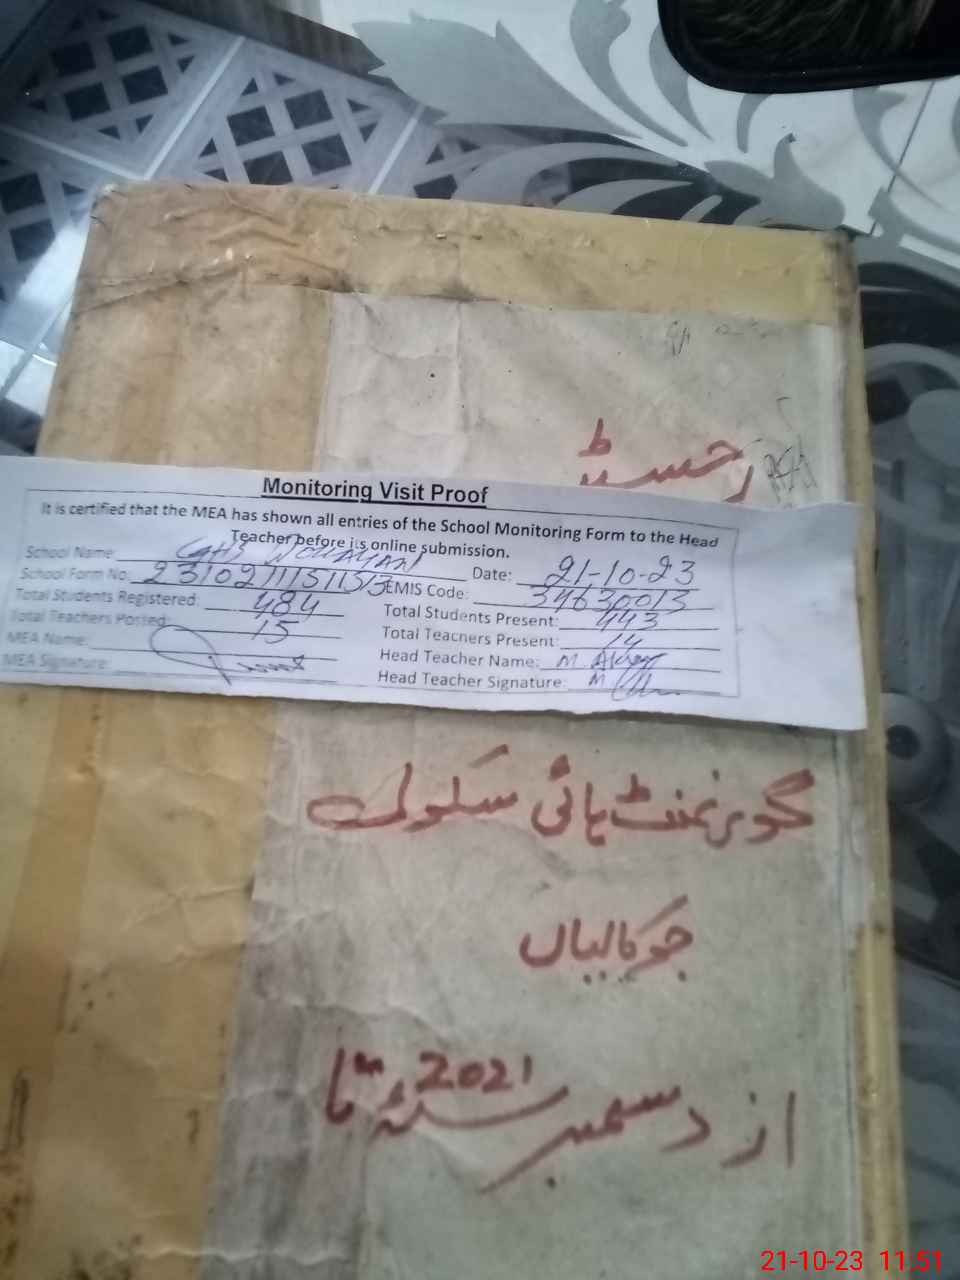 رجسٹر
Monitoring Visit Proof
It is certified that the MEA has shown all entries of the School Monitoring Form to the Head
Teacher before its online submission.
School Name: GHS Date: 21-10-23
School Form No: EMIS Code: 34630013
Total Students Registered: 484 Total Students Present: 443
Total Teachers Posted: 15 Total Teachers Present: 14
MEA Name: Head Teacher Name: M. Akram
MEA Signature: Head Teacher Signature: M
گورنمنٹ ہائی سکول
جوکالیاں
از دسمبر 2021ء تا
21-10-23 11:51